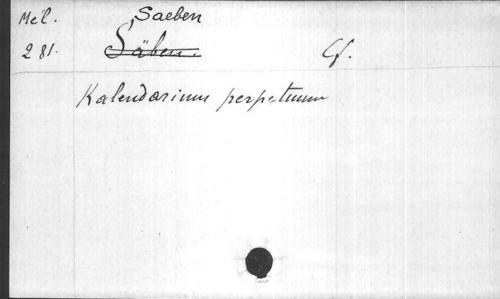 Mel. Saeben
281. Säben. Cf.
Kalendarium perpetuum